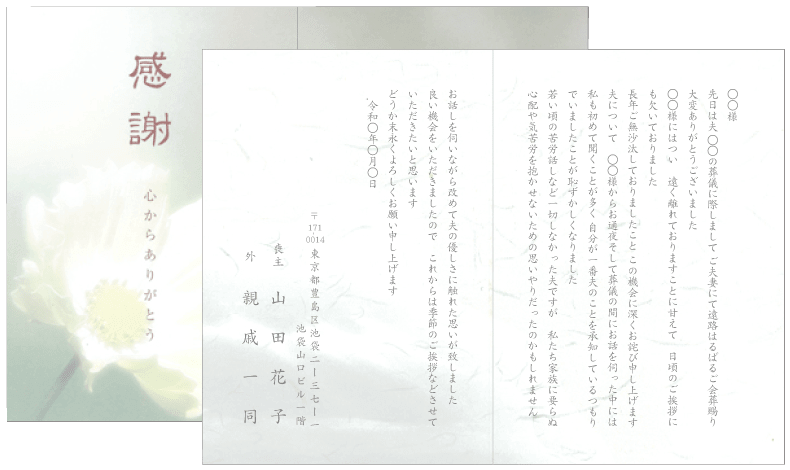 感謝
心からありがとう
〇〇様
先日は夫〇〇の葬儀に際しまして ご夫妻にて遠路はるばるご会葬賜り
大変ありがとうございました
〇〇様にはつい 遠く離れておりますことに甘えて 日頃のご挨拶に
も欠いておりました
長年ご無沙汰しておりましたこと この機会に深くお詫び申し上げます
夫について 〇〇様からお通夜そして葬儀の間にお話を伺った中には
私も初めて聞くことが多く 自分が一番夫のことを承知しているつもり
でいましたことが恥ずかしくなりました
若い頃の苦労話など一切しなかった夫ですが 私たち家族に要らぬ
心配や気苦労を抱かせないための思いやりだったのかもしれません
お話しを伺いながら改めて夫の優しさに触れた思いが致しました
良い機会をいただきましたので これからは季節のご挨拶などさせて
いただきたいと思います
どうか末永くよろしくお願い申し上げます
令和〇年〇月〇日
〒171-0014
東京都豊島区池袋二ー三七ー一
池袋山ロビル一階
喪主 山田花子
外 親戚一同